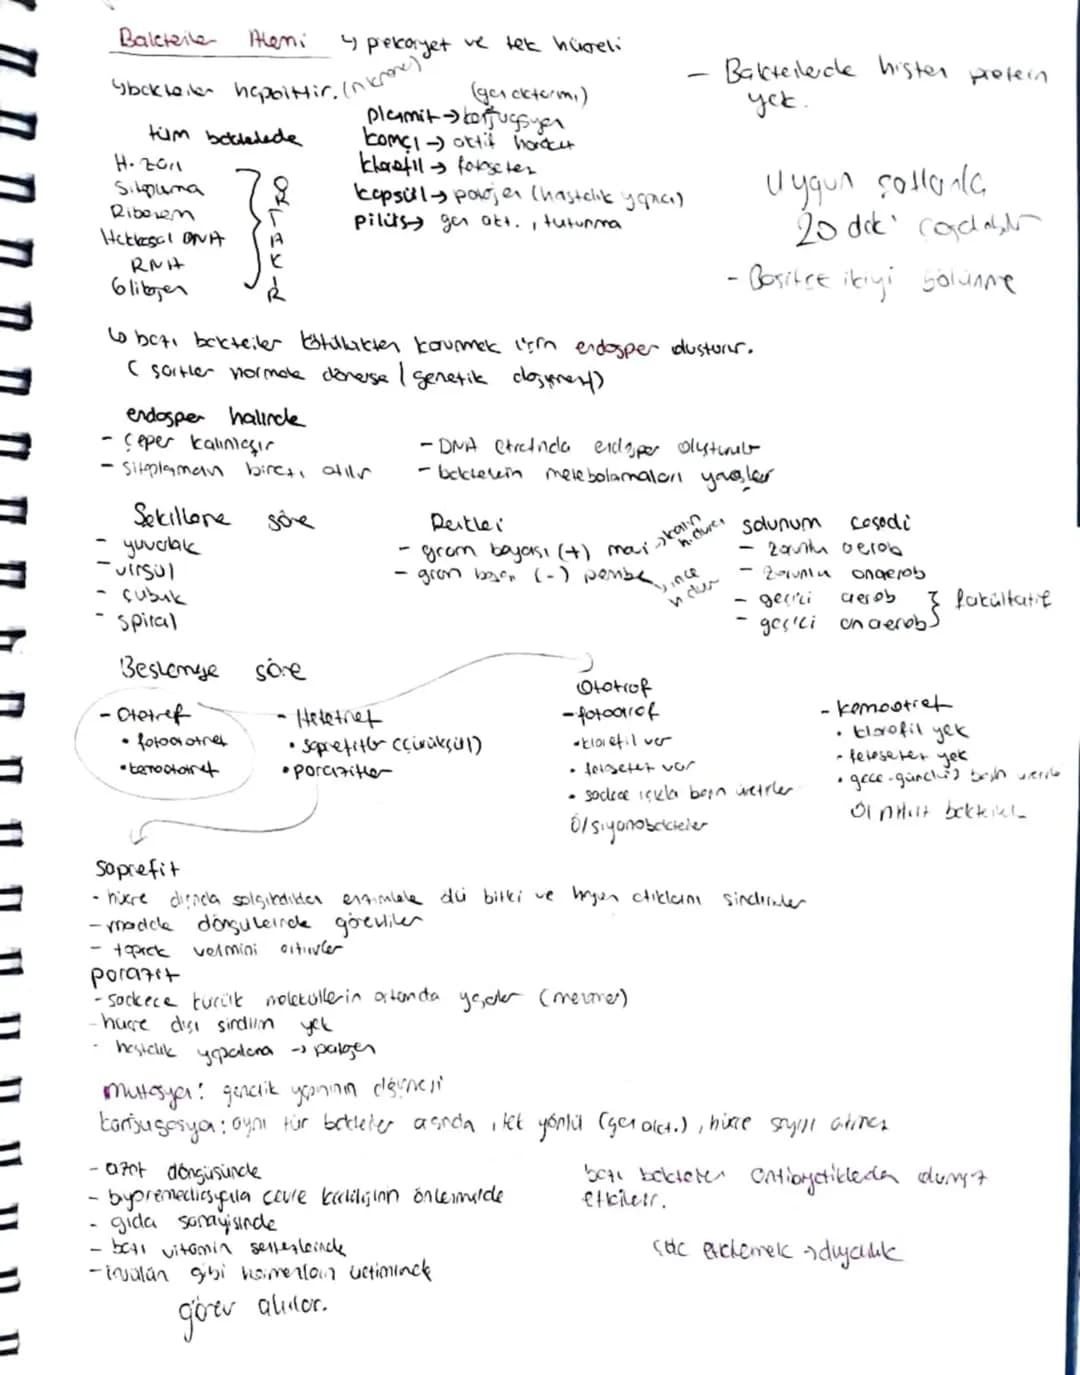 Bakteriler Alemi ↳ prokaryot ve tek hücreli
↳ bakteriler haploittir. (n kromo)
- Bakterilerde histon protein
yok.
tüm bakterilerde
H. zarı
Sitoplazma
Ribozom
Halkasal DNA
RNA
Glikojen
ORTAKTIR
(gen aktarımı)
plazmit → konjugasyon
kamçı → aktif hareket
klorofil → fotosentez
kapsül → patojen (hastalık yapıcı)
pilus → gen akt., tutunma
Uygun şartlarda
20 dak' çoğalabilir
- Basitçe ikiye bölünme
↳ bazı bakteriler kötülükten korunmak için endospor oluşturur.
( şartlar normale dönerse / genetik değişmez)
endospor halinde
- çeper kalınlaşır
- Sitoplazmanın birazı atılır
- DNA etrafında endospor oluşturulur
- bakterinin metabolamaları yavaşlar
Şekillerine göre
- yuvarlak
- virgül
- çubuk
- spiral
Renkleri
- gram boyası (+) mavi → kalın h. duvarı
- gram boyası (-) pembe → ince h. duvar
solunum çeşidi
- zorunlu aerob
- zorunlu anaerob
- geçici aerob
- geçici anaerob } fakültatif
Beslenmeye göre
- Ototrof
• fotoototrof
• kemoototrof
- Heterotrof
• saprofitler (çürükçül)
• parazitler
Ototrof
- fotootrof
• klorofil var
• fotosentez var
• sadece ışıkla besin üretirler
Ö/ siyanobakteriler
- kemootrof
• klorofil yok
• fotosentez yok
• gece-gündüz besin üretir
Ö/ nitrit bakteriler
saprofit
- hücre dışında salgıladıkları enzimlerle ölü bitki ve hayvan atıklarını sindirirler
- madde döngülerinde görevliler
- toprak verimini arttırırlar
parazit
- sadece küçük moleküllerin ortamda yaşarlar
- hücre dışı sindirim yok
- hastalık yapanlara → patojen
Mutasyon: genetik yapının değişmesi
konjugasyon: aynı tür bakteriler arasında, tek yönlü (gen akt.), hücre sayısı artmaz
- azot döngüsünde
- biyoremediasyonla çevre kirliliğinin önlenmesinde
- gıda sanayisinde
- bazı vitamin sentezlerinde
- insülün gibi hormonların üretiminde
görev alırlar.
bazı bakteriler antibiyotiklerden olumsuz
etkilenir.